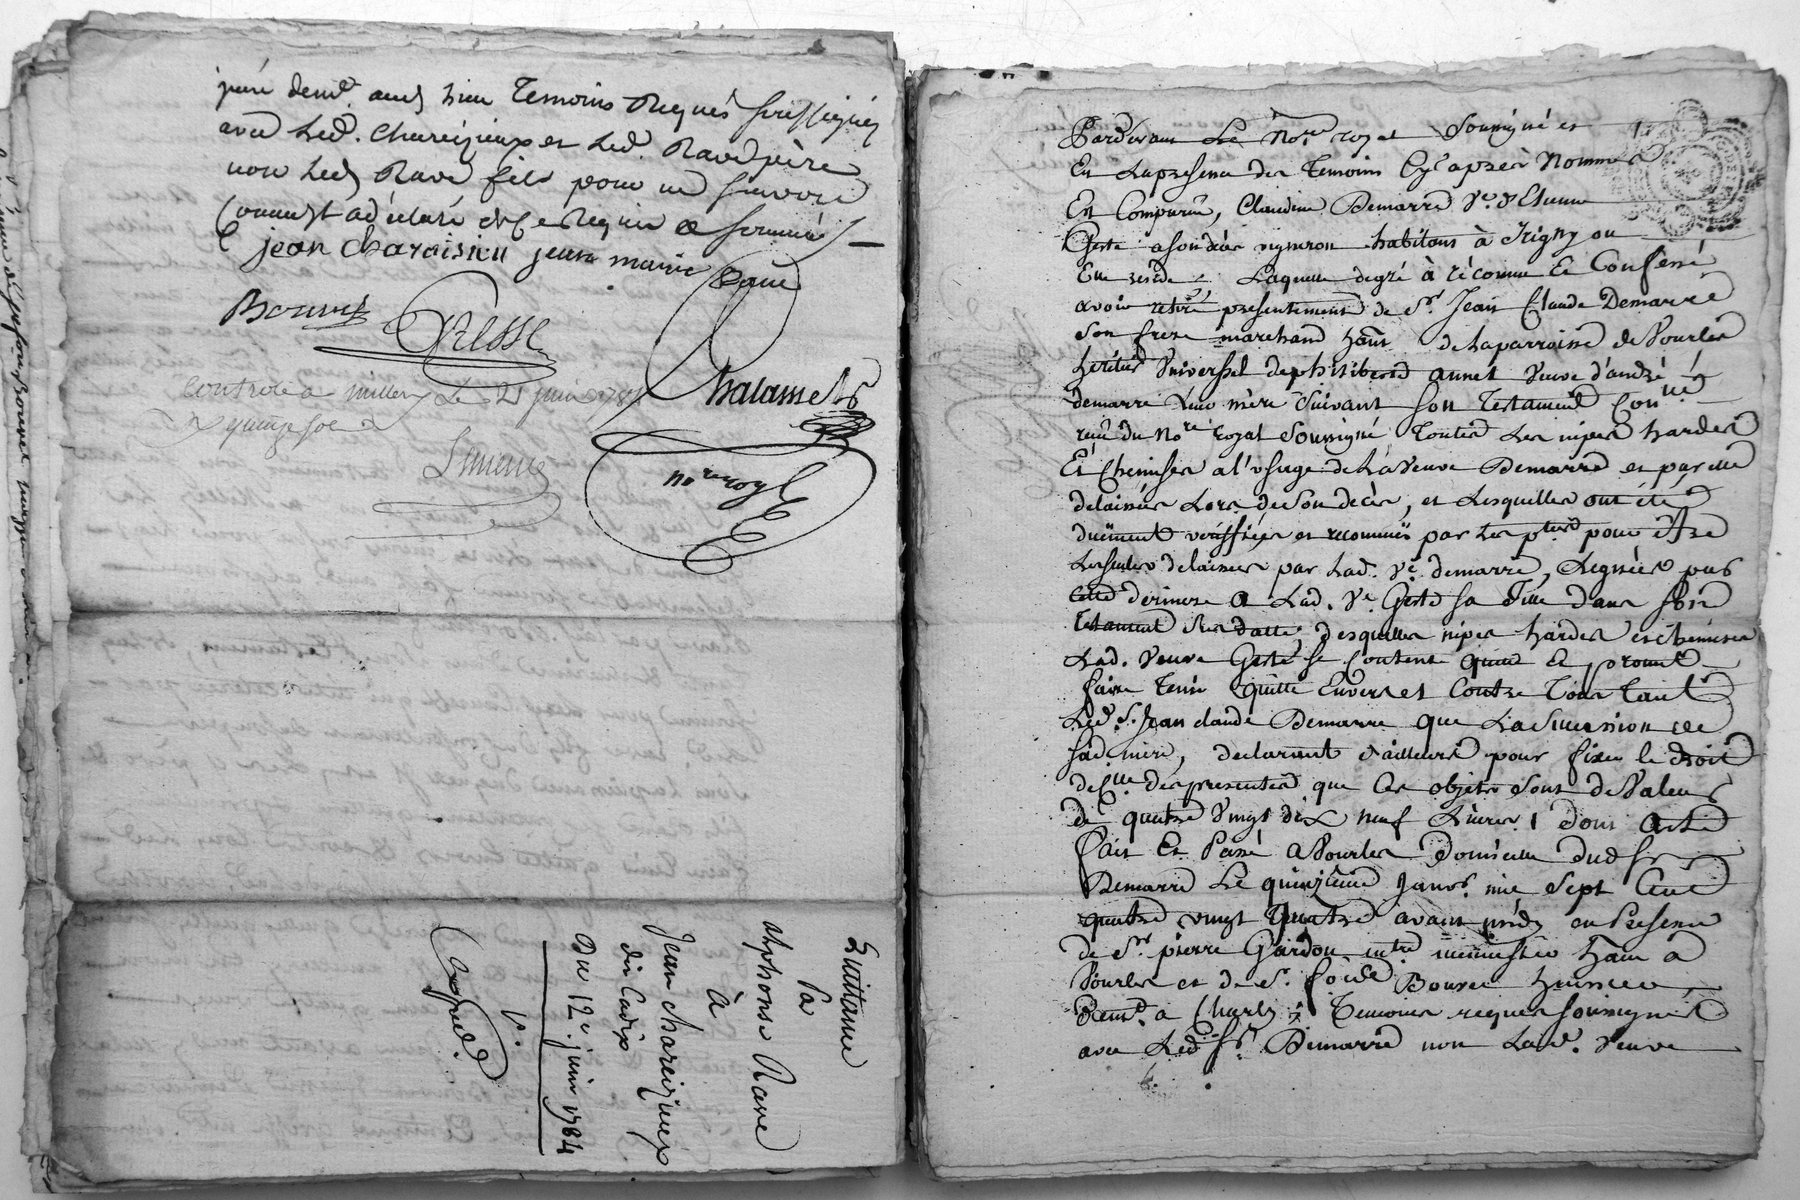 juré demt. aud. lieu Temoins Requis soussignés
avec Led. Chareizieux et Led. Rave père
non Led. Rave fils pour ne savoir
Comme il a déclaré de ce Requis et sommé
jean charaisieu jean marie Rave
Bouvet
Gresse
Chalamel
nore royl
Controlé a millery Le 21 juin 1784
quinze sols
Quittance
Par
alphonse Rave
à
Jean chareizieux
dit Cadix
Du 12e. juin 1784
Expiée.
Pardevant Le Nore. royal Soussigné et
En La presence des Temoins Cy après Nommés
Est Comparüe, Claudine Demarre Ve. d'Etienne
Geste a son décès vigneron habitant à Irigny ou
Elle reside, Laquelle de gré à réconnu Et Confessé
avoir retiré presentement de Sr. Jean Claude Demarre
Son frere marchand hant. de La parroisse de Vourles
heritier Universel de philiberte annet Veuve d'andré
demarre Leur mère Suivant Son Testament
reçu du Nore royal Soussigné Toutes Les nipes hardes
Et Chemises a l'usage de La Veuve Demarre et par elle
delaissées Lors de Son decès, et Lesquelles ont été
duëment vériffiées et reconnües par Les pties pour être
Les seules delaissées par Lad. Ve. demarre, Leguées par
cette derniere a Lad. Ve. Geste sa fille dans son
Testament Sus datté, desquelles nipes hardes et chemises
Lad. Veuve Geste se Contente quitte Et promet
faire Tenir quitte Envers et Contre Tous Tant
Led. Sr. Jean claude Demarre que La Succession de
sad. mère, declarant d'ailleurs pour fixer le droit
de Clle des presentes que Ces objets Sont de Valeur
de quatre Vingt dix neuf Livres, Dont Acte
Fait Et Passé a Vourles Domicille dud Sr
Demarre Le quinzieme Janvr. mil Sept Cent
quatre vingt quatre avant midy en Presence
de Sr. pierre Gardon Hant a
Vourles et de Sr. Bouvet huissier
demt. a Charly Temoins requis soussignés
avec Led. Sr. Demarre non Lad. Veuve